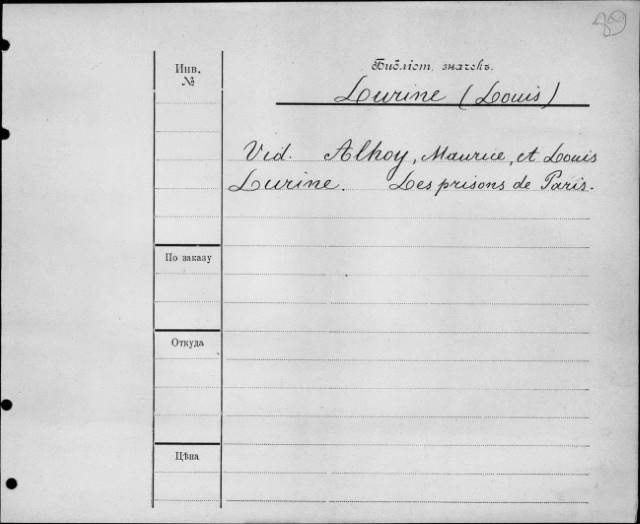 89
Инв.
№
Библіот. значекъ.
Lurine (Louis)
Vid. Alhoy, Maurice, et Louis
Lurine. Les prisons de Paris.
По заказу
Откуда
Цѣна